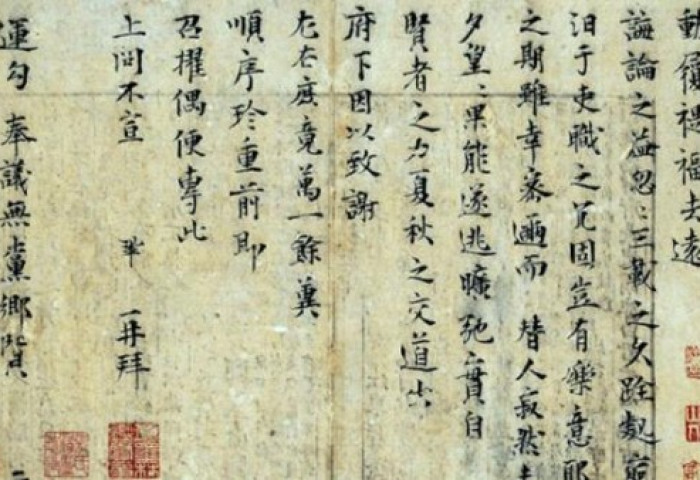 動履禔福去遠
誨論之益忽〻三載之久跧處
汨于吏職之冗固豈有樂意耶
之期雖幸密邇而 替人寂然
夕望〻果能遂逃曠弛實自
賢者之力夏秋之交道出
府下因以致謝
左右庶竟萬一餘冀
順序珍重前即
召擢偶便專此
上問不宣 鞏 再拜
運勾奉議無黨鄉賢 二